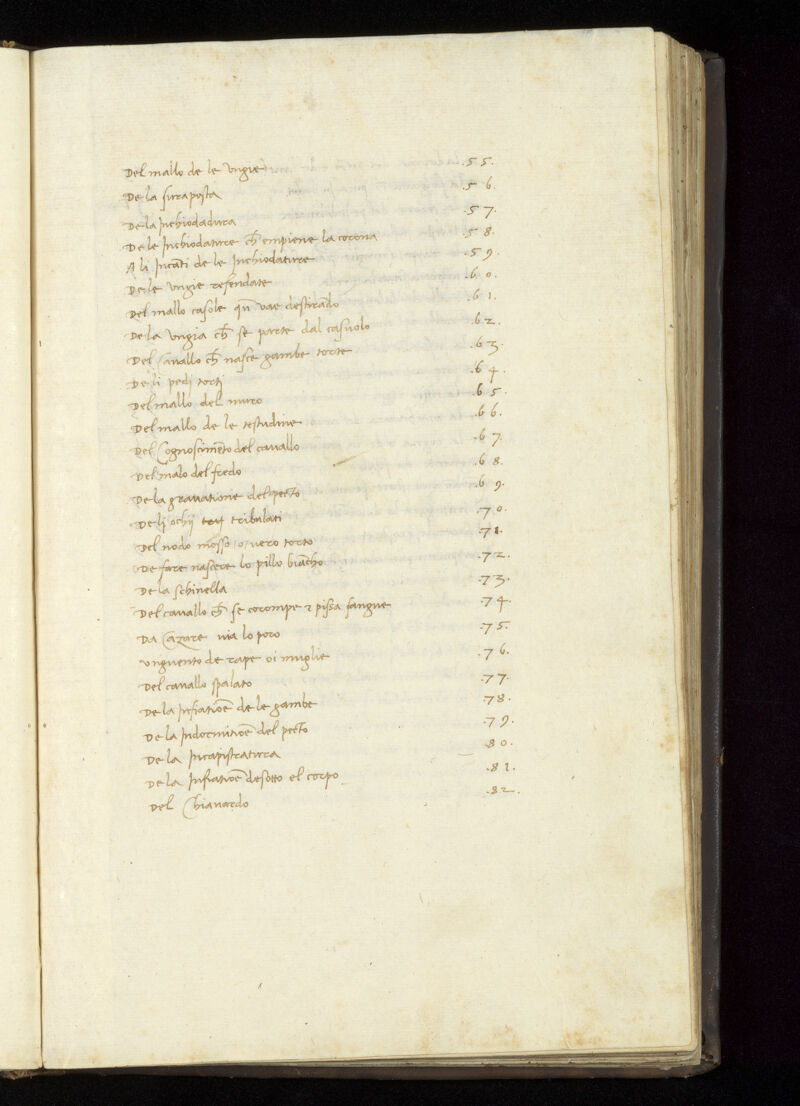 Del mallo de le Vngie .55.
De la surapista .56.
De la Inchiodadura .57.
De le Inchiodature ch̄ empiene la corona .58.
A li Incāti de le Inchiodature .59.
De le vngie refendate .60.
Del mallo casole qn̄ vae destirādo .61.
De la vngia ch̄ se parte dal casuolo .62.
Del Cauallo ch̄ nasce gambe torte .63.
De li pedi torti .64.
Del mallo del muro .65.
Del mallo de le testudine .66.
Del Cognoscimēto del cauallo .67.
Del malo del fredo .68.
De la grauatione del pecto .69.
De li ochij tribulati .70.
Del nodo mosso o vero torto .71.
De fare nascere lo pillo biācho .72.
De la schinella .73.
Del cauallo ch̄ se corompe & pissa sangue .74.
Da Cazare via lo poro .75.
vnguento de rape oi muglie .76.
Del cauallo spalato .77.
De la Infiatiōe de le gambe .78.
De la Indormitiōe del pecto .79.
De la Incapistratura .80.
De la Infiatiōe desotto el corpo .81.
Del Chiauardo .82.